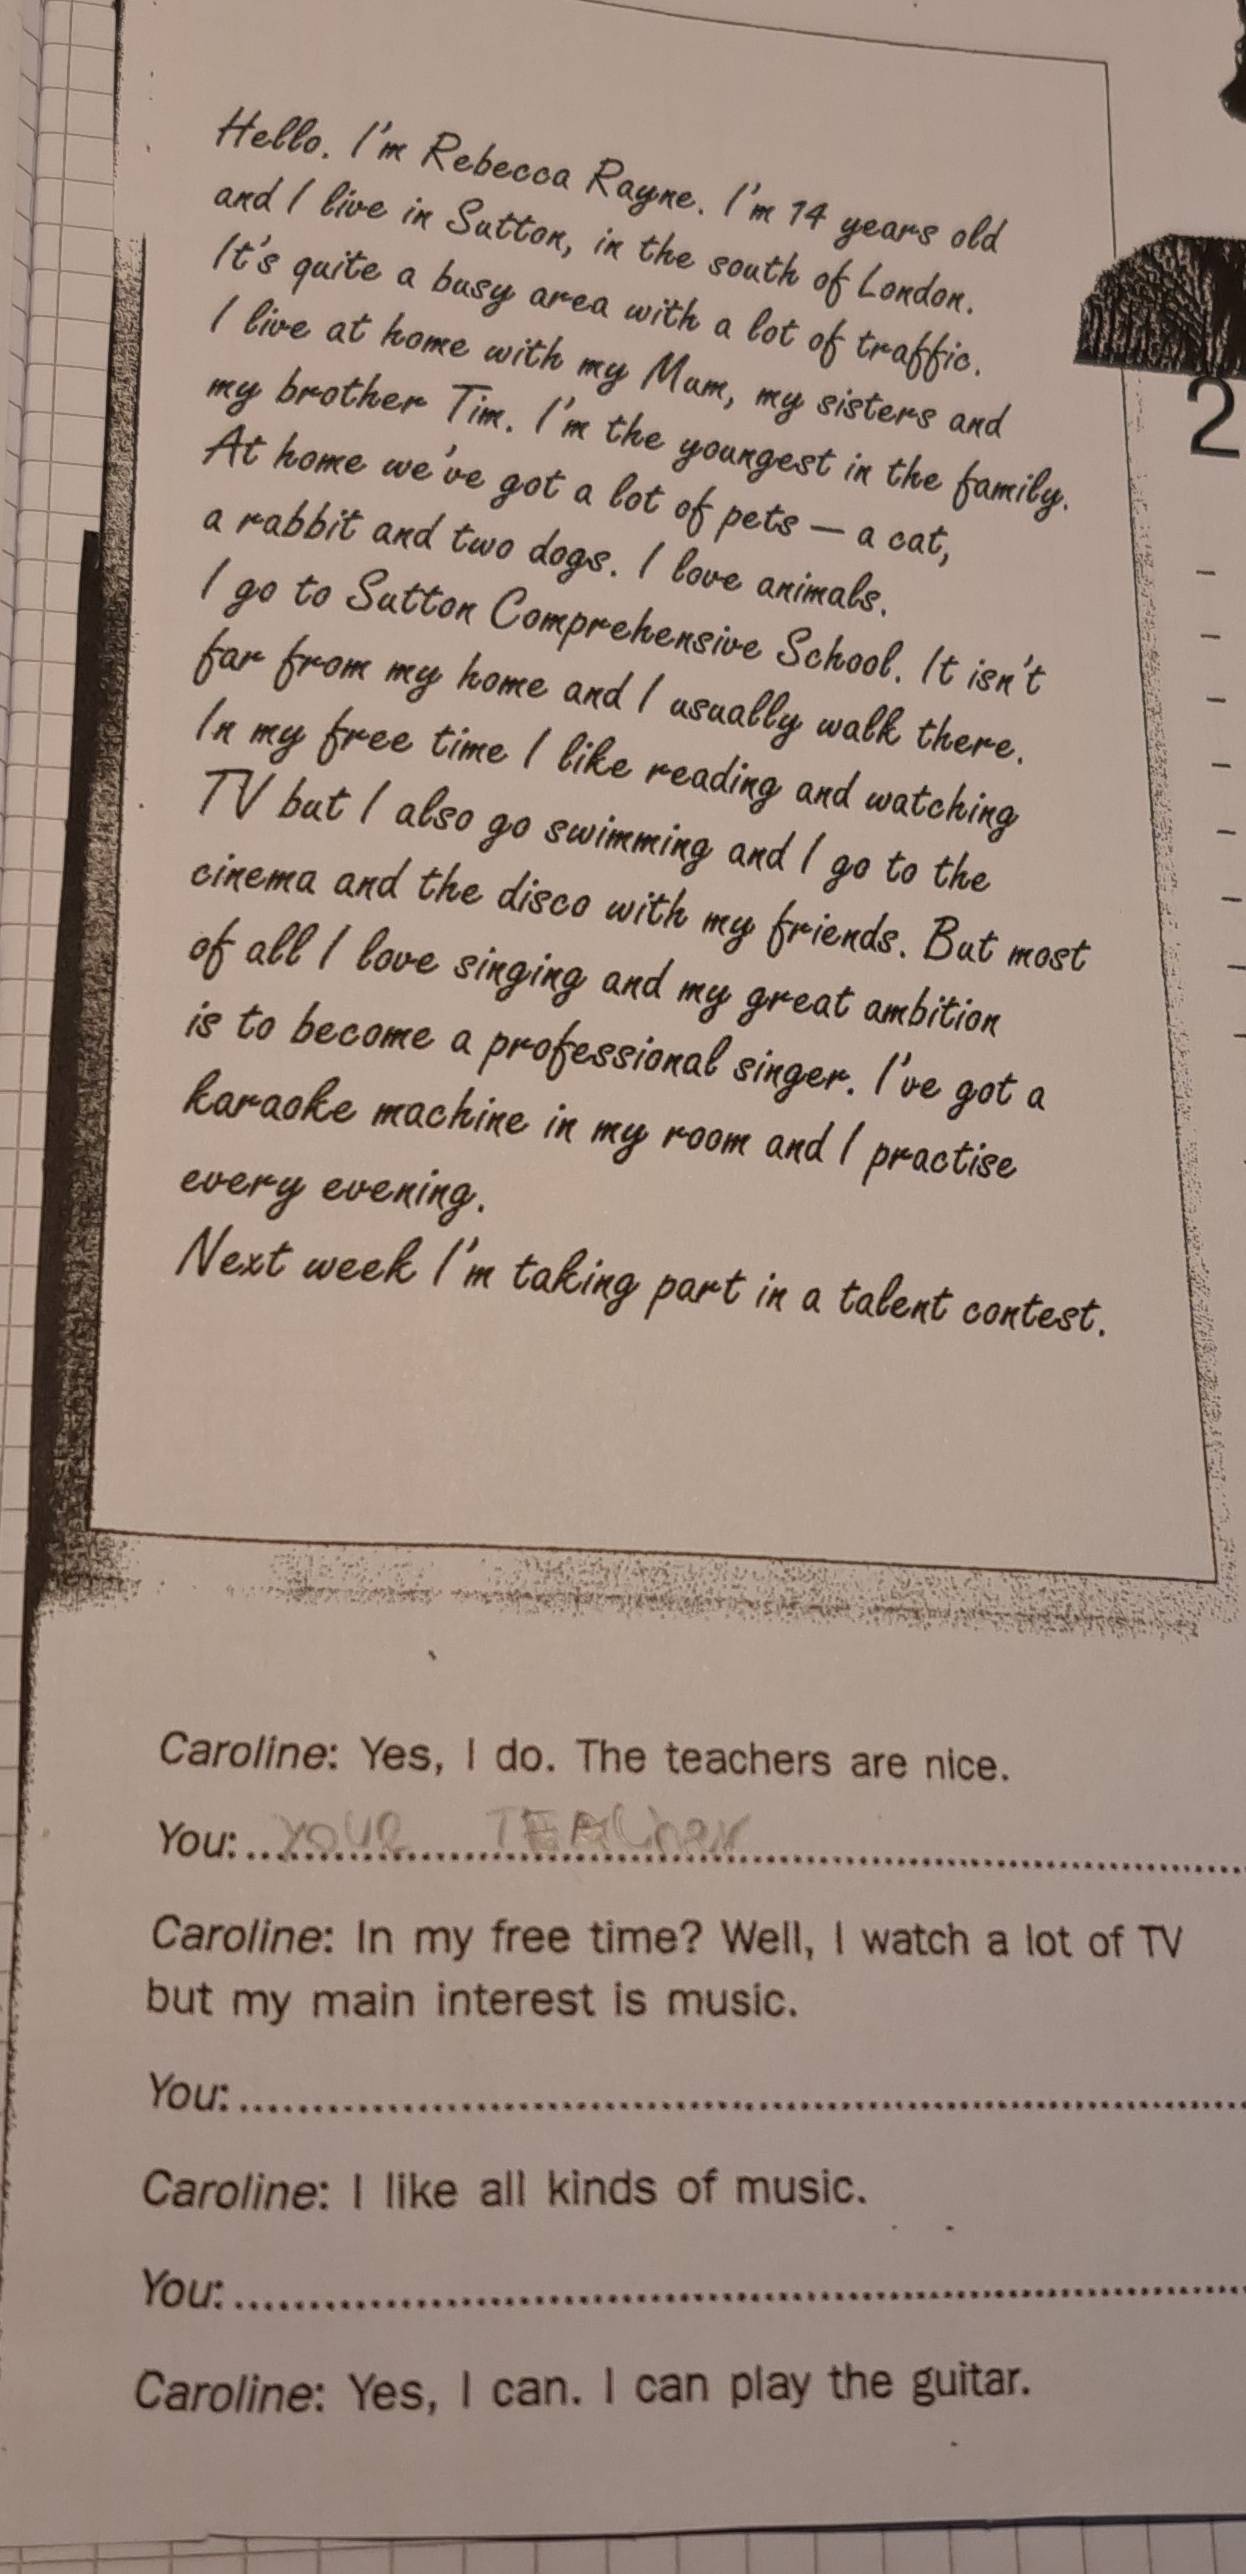 Hello. I'm Rebecca Rayne. I'm 14 years old
and I live in Sutton, in the south of London.
It's quite a busy area with a lot of traffic.
I live at home with my Mum, my sisters and
my brother Tim. I'm the youngest in the family.
At home we've got a lot of pets — a cat,
a rabbit and two dogs. I love animals.
I go to Sutton Comprehensive School. It isn't
far from my home and I usually walk there.
In my free time I like reading and watching
TV but I also go swimming and I go to the
cinema and the disco with my friends. But most
of all I love singing and my great ambition
is to become a professional singer. I've got a
karaoke machine in my room and I practise
every evening.
Next week I'm taking part in a talent contest.
2
Caroline: Yes, I do. The teachers are nice.
You: YOUR TEACher
Caroline: In my free time? Well, I watch a lot of TV
but my main interest is music.
You:
Caroline: I like all kinds of music.
You:
Caroline: Yes, I can. I can play the guitar.